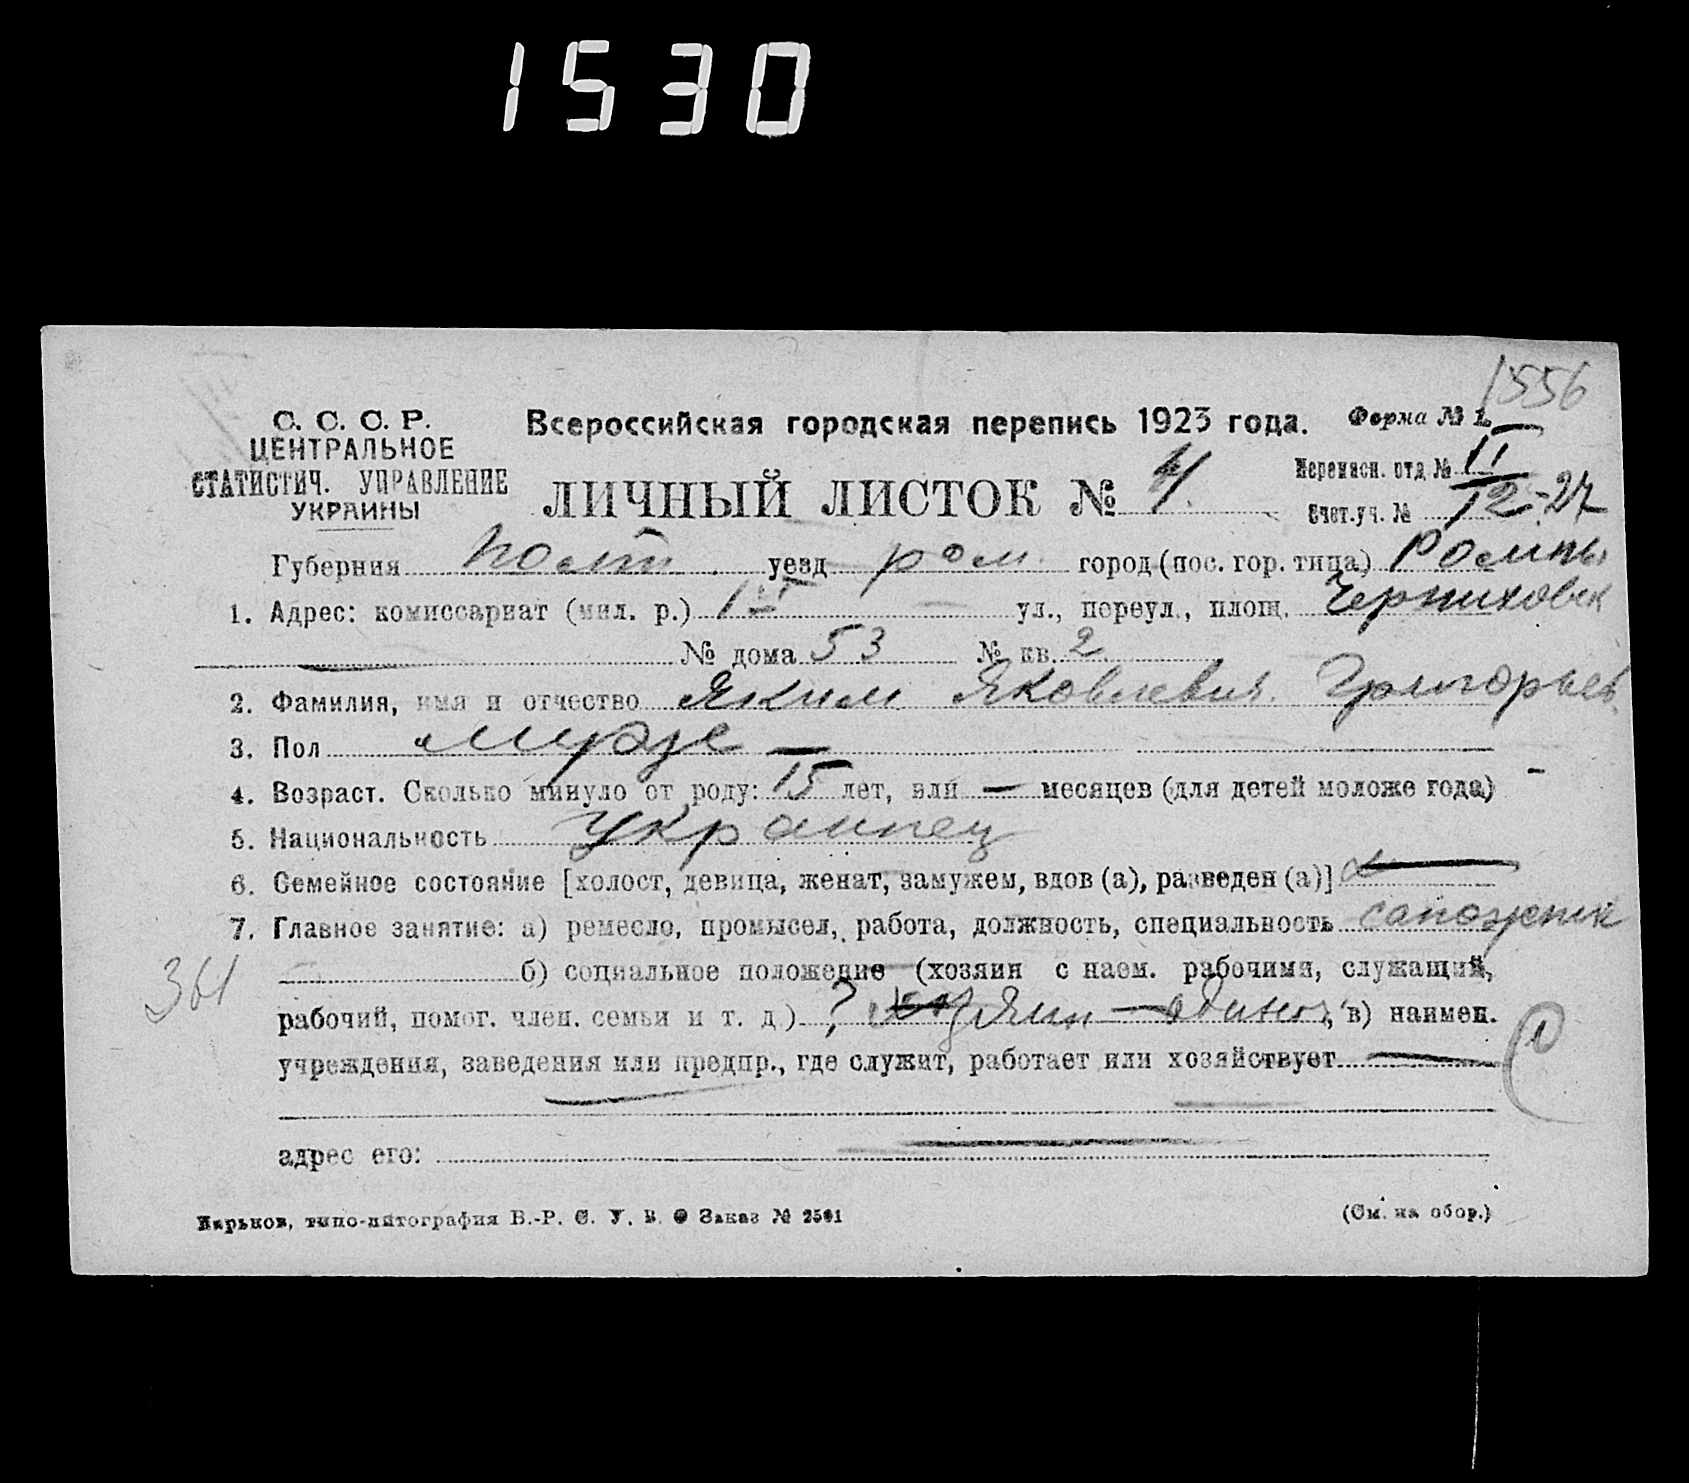 1530
1556
С. С. С. Р.
ЦЕНТРАЛЬНОЕ
СТАТИСТИЧ. УПРАВЛЕНИЕ
УКРАИНЫ
Всероссийская городская перепись 1923 года. Форма № 1.
ЛИЧНЫЙ ЛИСТОК № 4.
Переписн. отд. № II
Счет.уч. № 12-27
Губерния Полт. уезд ром. город (пос. гор. типа) Ромны
1. Адрес: комиссариат (мил. р.) 1 ул., переул., площ. Черниховск
№ дома 53 № кв. 2
2. Фамилия, имя и отчество Яким Яковлевич Григорьев
3. Пол мужс —
4. Возраст. Сколько минуло от роду: 15 лет, или — месяцев (для детей моложе года)
5. Национальность Украинец
6. Семейное состояние [холост, девица, женат, замужем, вдов (а), разведен (а)]
7. Главное занятие: а) ремесло, промысел, работа, должность, специальность сапожник
б) социальное положение (хозяин с наем. рабочими, служащий,
361
рабочий, помог. член. семьи и т. д.) ? хозяин — один, в) наимен.
учреждения, заведения или предпр., где служит, работает или хозяйствует —
1
адрес его:
Харьков, типо-литография В.-Р. С. У. В. О Заказ № 2501
(См. на обор.)